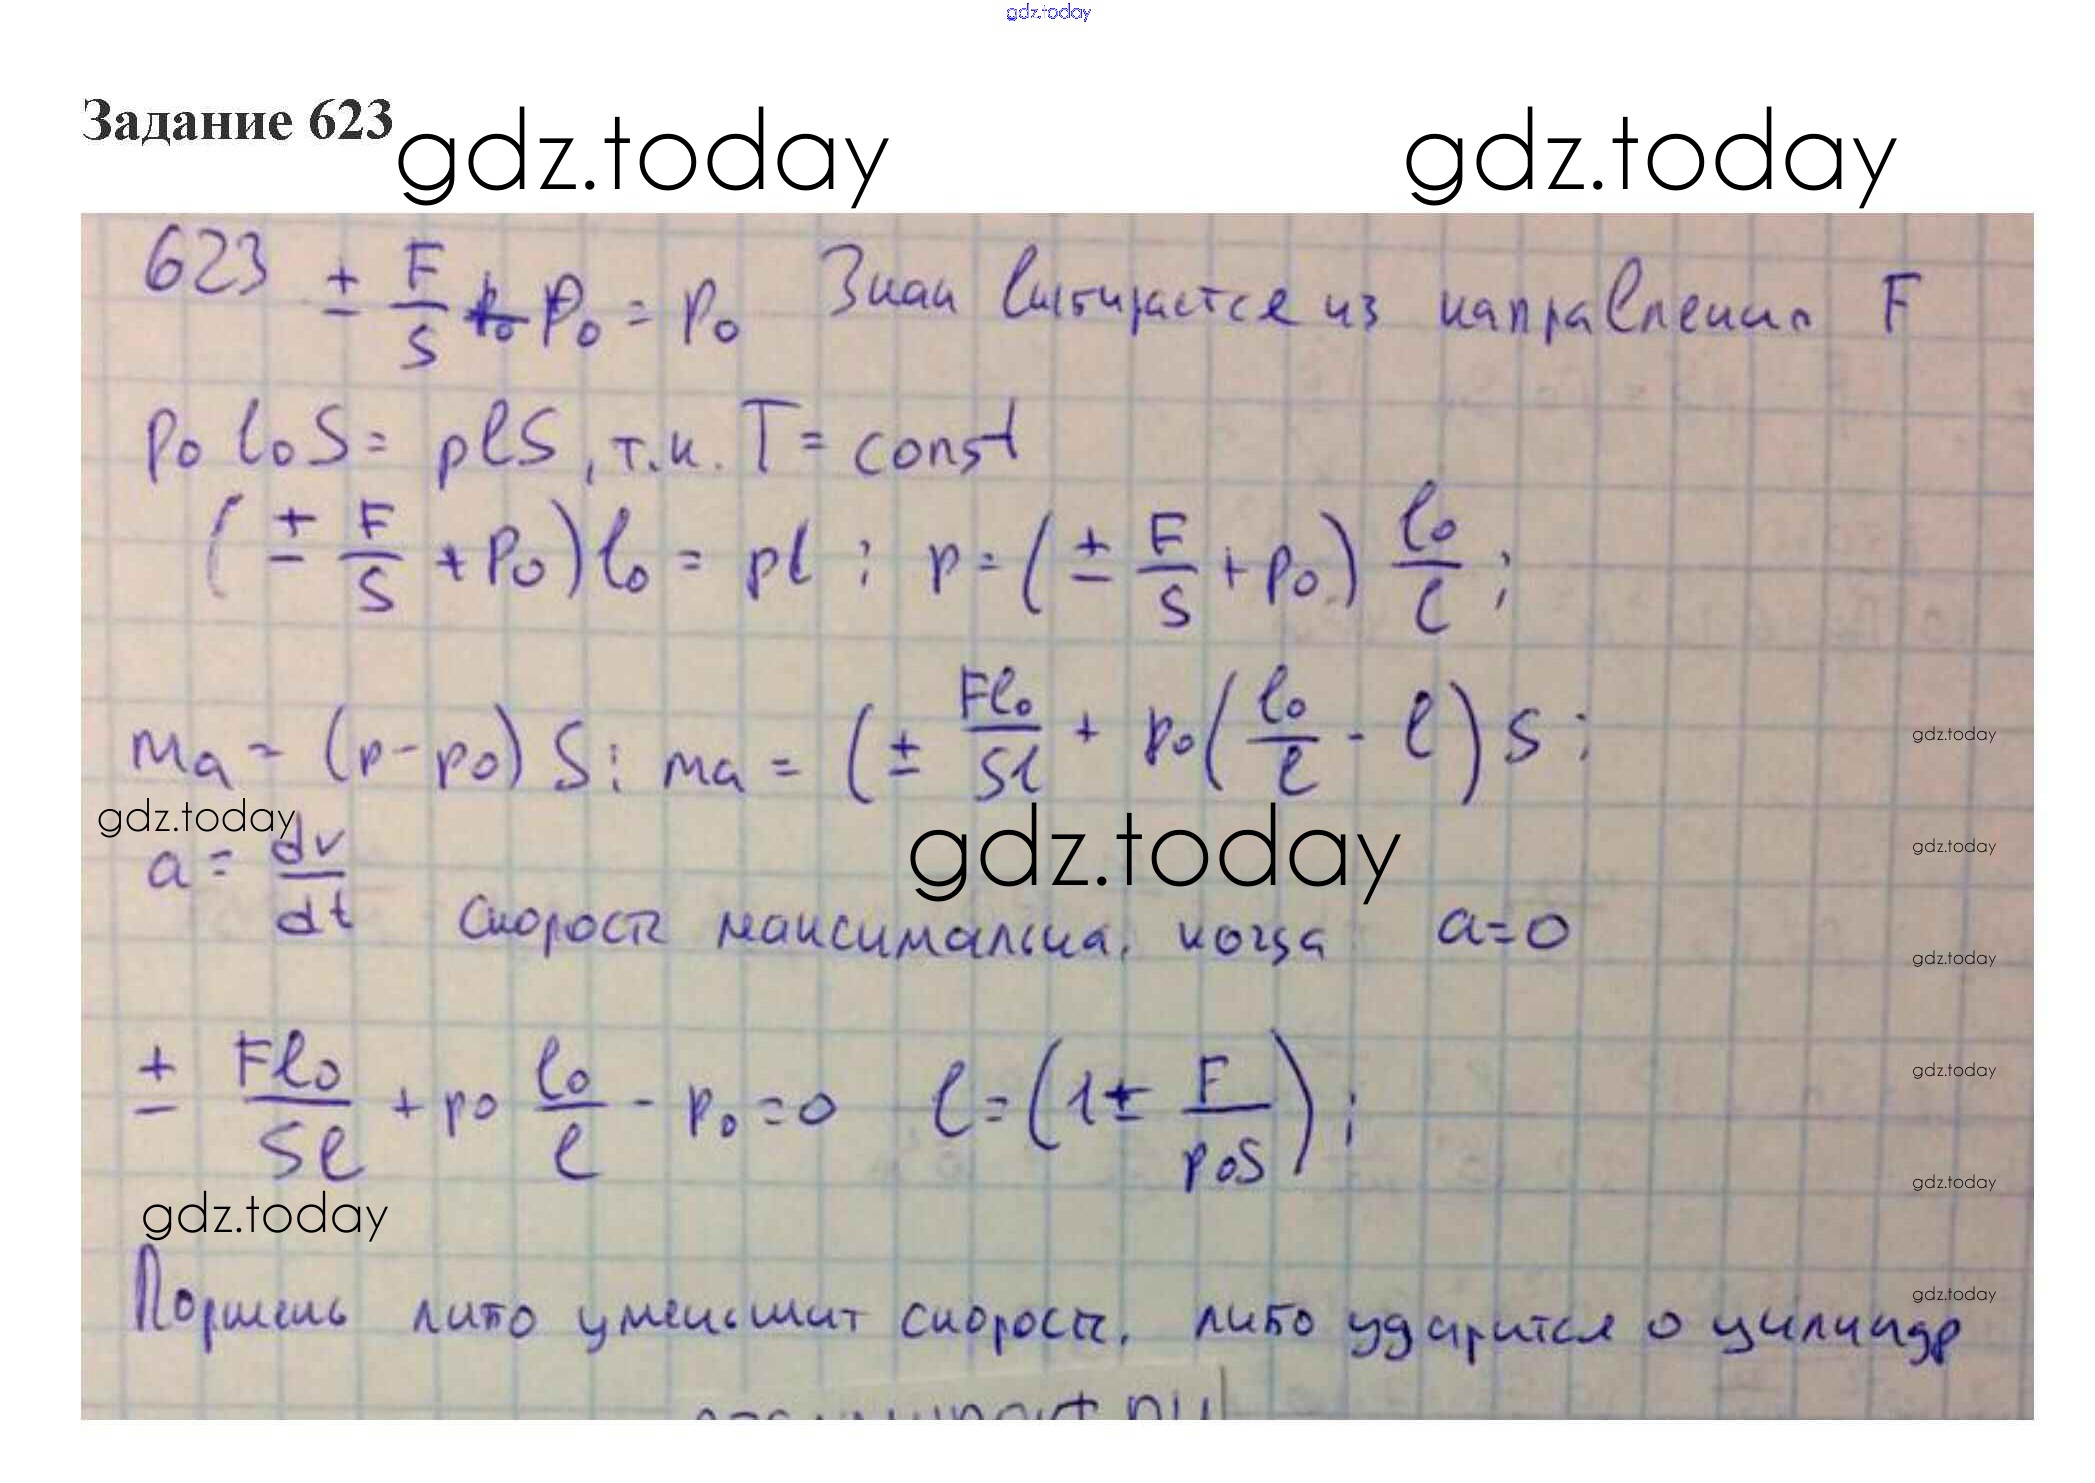 gdz.today
Задание 623
gdz.today gdz.today
623 ± F/S + P₀ = p₀ Знак выбирается из направления F
p₀ l₀ S = p l S, т.к. T = const
(± F/S + P₀) l₀ = pl ; p = (± F/S + p₀) l₀/l ;
ma = (p - p₀) S ; ma = (± Fl₀/Sl + p₀(l₀/l - l) S ;
gdz.today
gdz.today
a = dv/dt
gdz.today
gdz.today
Скорость максимальна, когда a = 0
gdz.today
± Fl₀/Sl + p₀ l₀/l - p₀ = 0 l = (1 ± F/p₀S) ;
gdz.today
gdz.today
gdz.today
Поршень либо уменьшит скорость, либо ударится о цилиндр
gdz.today